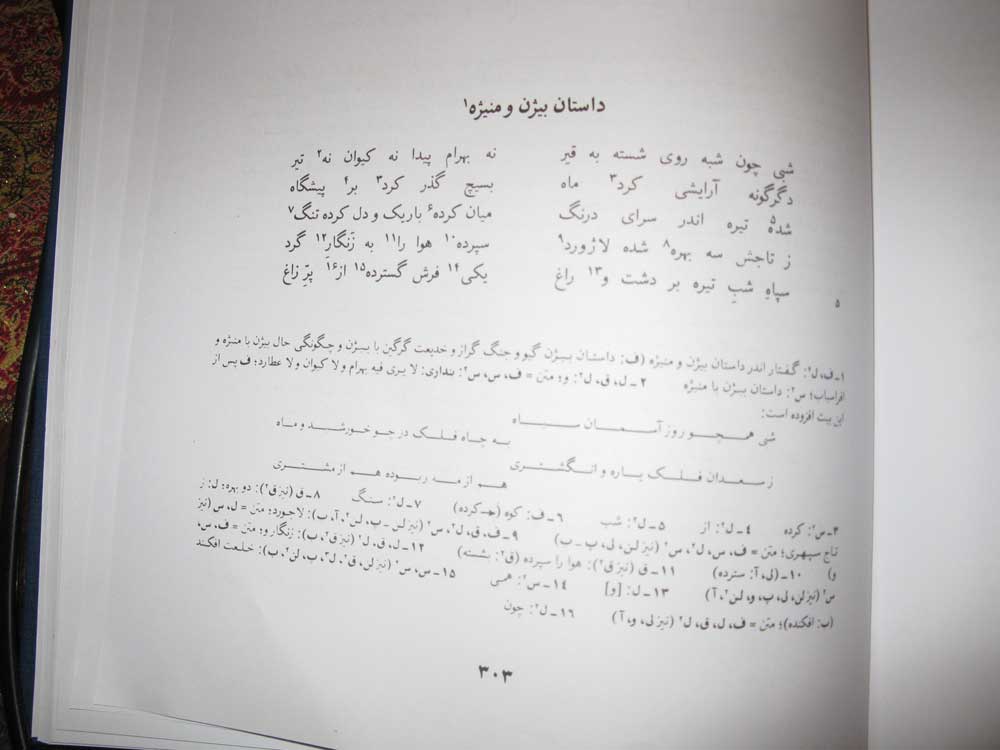 داستان بیژن و منیژه۱
شبی چون شبه روی شسته به قیر نه بهرام پیدا نه کیوان نه۲ تیر
دگرگونه آرایشی کرد۳ ماه بسیچ گذر کرد۳ بر۴ پیشگاه
شده۵ تیره اندر سرای درنگ میان کرده۶ باریک و دل کرده تنگ۷
ز تاجش سه بهره۸ شده لاژورد۹ سپرده۱۰ هوا را۱۱ به زَنگار۱۲ گرد
۵ سپاهِ شبِ تیره بر دشت و۱۳ راغ یکی۱۴ فرش گسترده۱۵ از۱۶ پرِّ زاغ
۱ـ ف، ل۲: گفتار اندر داستان بیژن و منیژه (ف: داستان بیژن گیو و جنگ گراز و خدیعت گرگین با بیژن و چگونگی حال بیژن با منیژه و
افراسیاب؛ س۲: داستان بیژن با منیژه ۲ـ ل، ق، ل۲: و؛ متن = ف، س، س۲؛ بنداری: لا یری فیه بهرام ولا کیوان ولا عطارد؛ ف پس از
این بیت افزوده است:
شبی همچو روز آسمان سیاه به چاه فلک در چو خورشید و ماه
ز سعدان فلک یاره و انگشتری هم از مه ربوده هم از مشتری
۳ـ س۲: کرده ۴ـ ل۲: از ۵ـ ل۲: شب ۶ـ ف: کوه (← کرده) ۷ـ ل۲: سنگ ۸ـ ق (نیز ق۲): دو بهره؛ ل: ز
تاج سپهری؛ متن = ف، س، ل۲، س۲ (نیز لن، لی، پ ـ ب) ۹ـ ف، ق، ل۲، س۲ (نیز لن ـ پ، لن۲، آ، ب): لاجورد؛ متن = ل، س (نیز
و) ۱۰ـ (لی، آ: سترده) ۱۱ـ ق (نیز ق۲): هوا را سپرده (ق۲: بشسته) ۱۲ـ ل، ق، ل۲ (نیز ق۲، ب): زنگار و؛ متن = ف، س،
س۲ (نیز لن، لی، پ، و، لن۲، آ) ۱۳ـ ل: [و] ۱۴ـ س۲: همی ۱۵ـ س، س۲ (نیز لن، ق۲، ل۲، پ، لن۲، ب): خلعت افکند
(ب: افکنده)؛ متن = ف، ل، ق، ل۲ (نیز لی، و، آ) ۱۶ـ ل۲: چون
۳۰۳